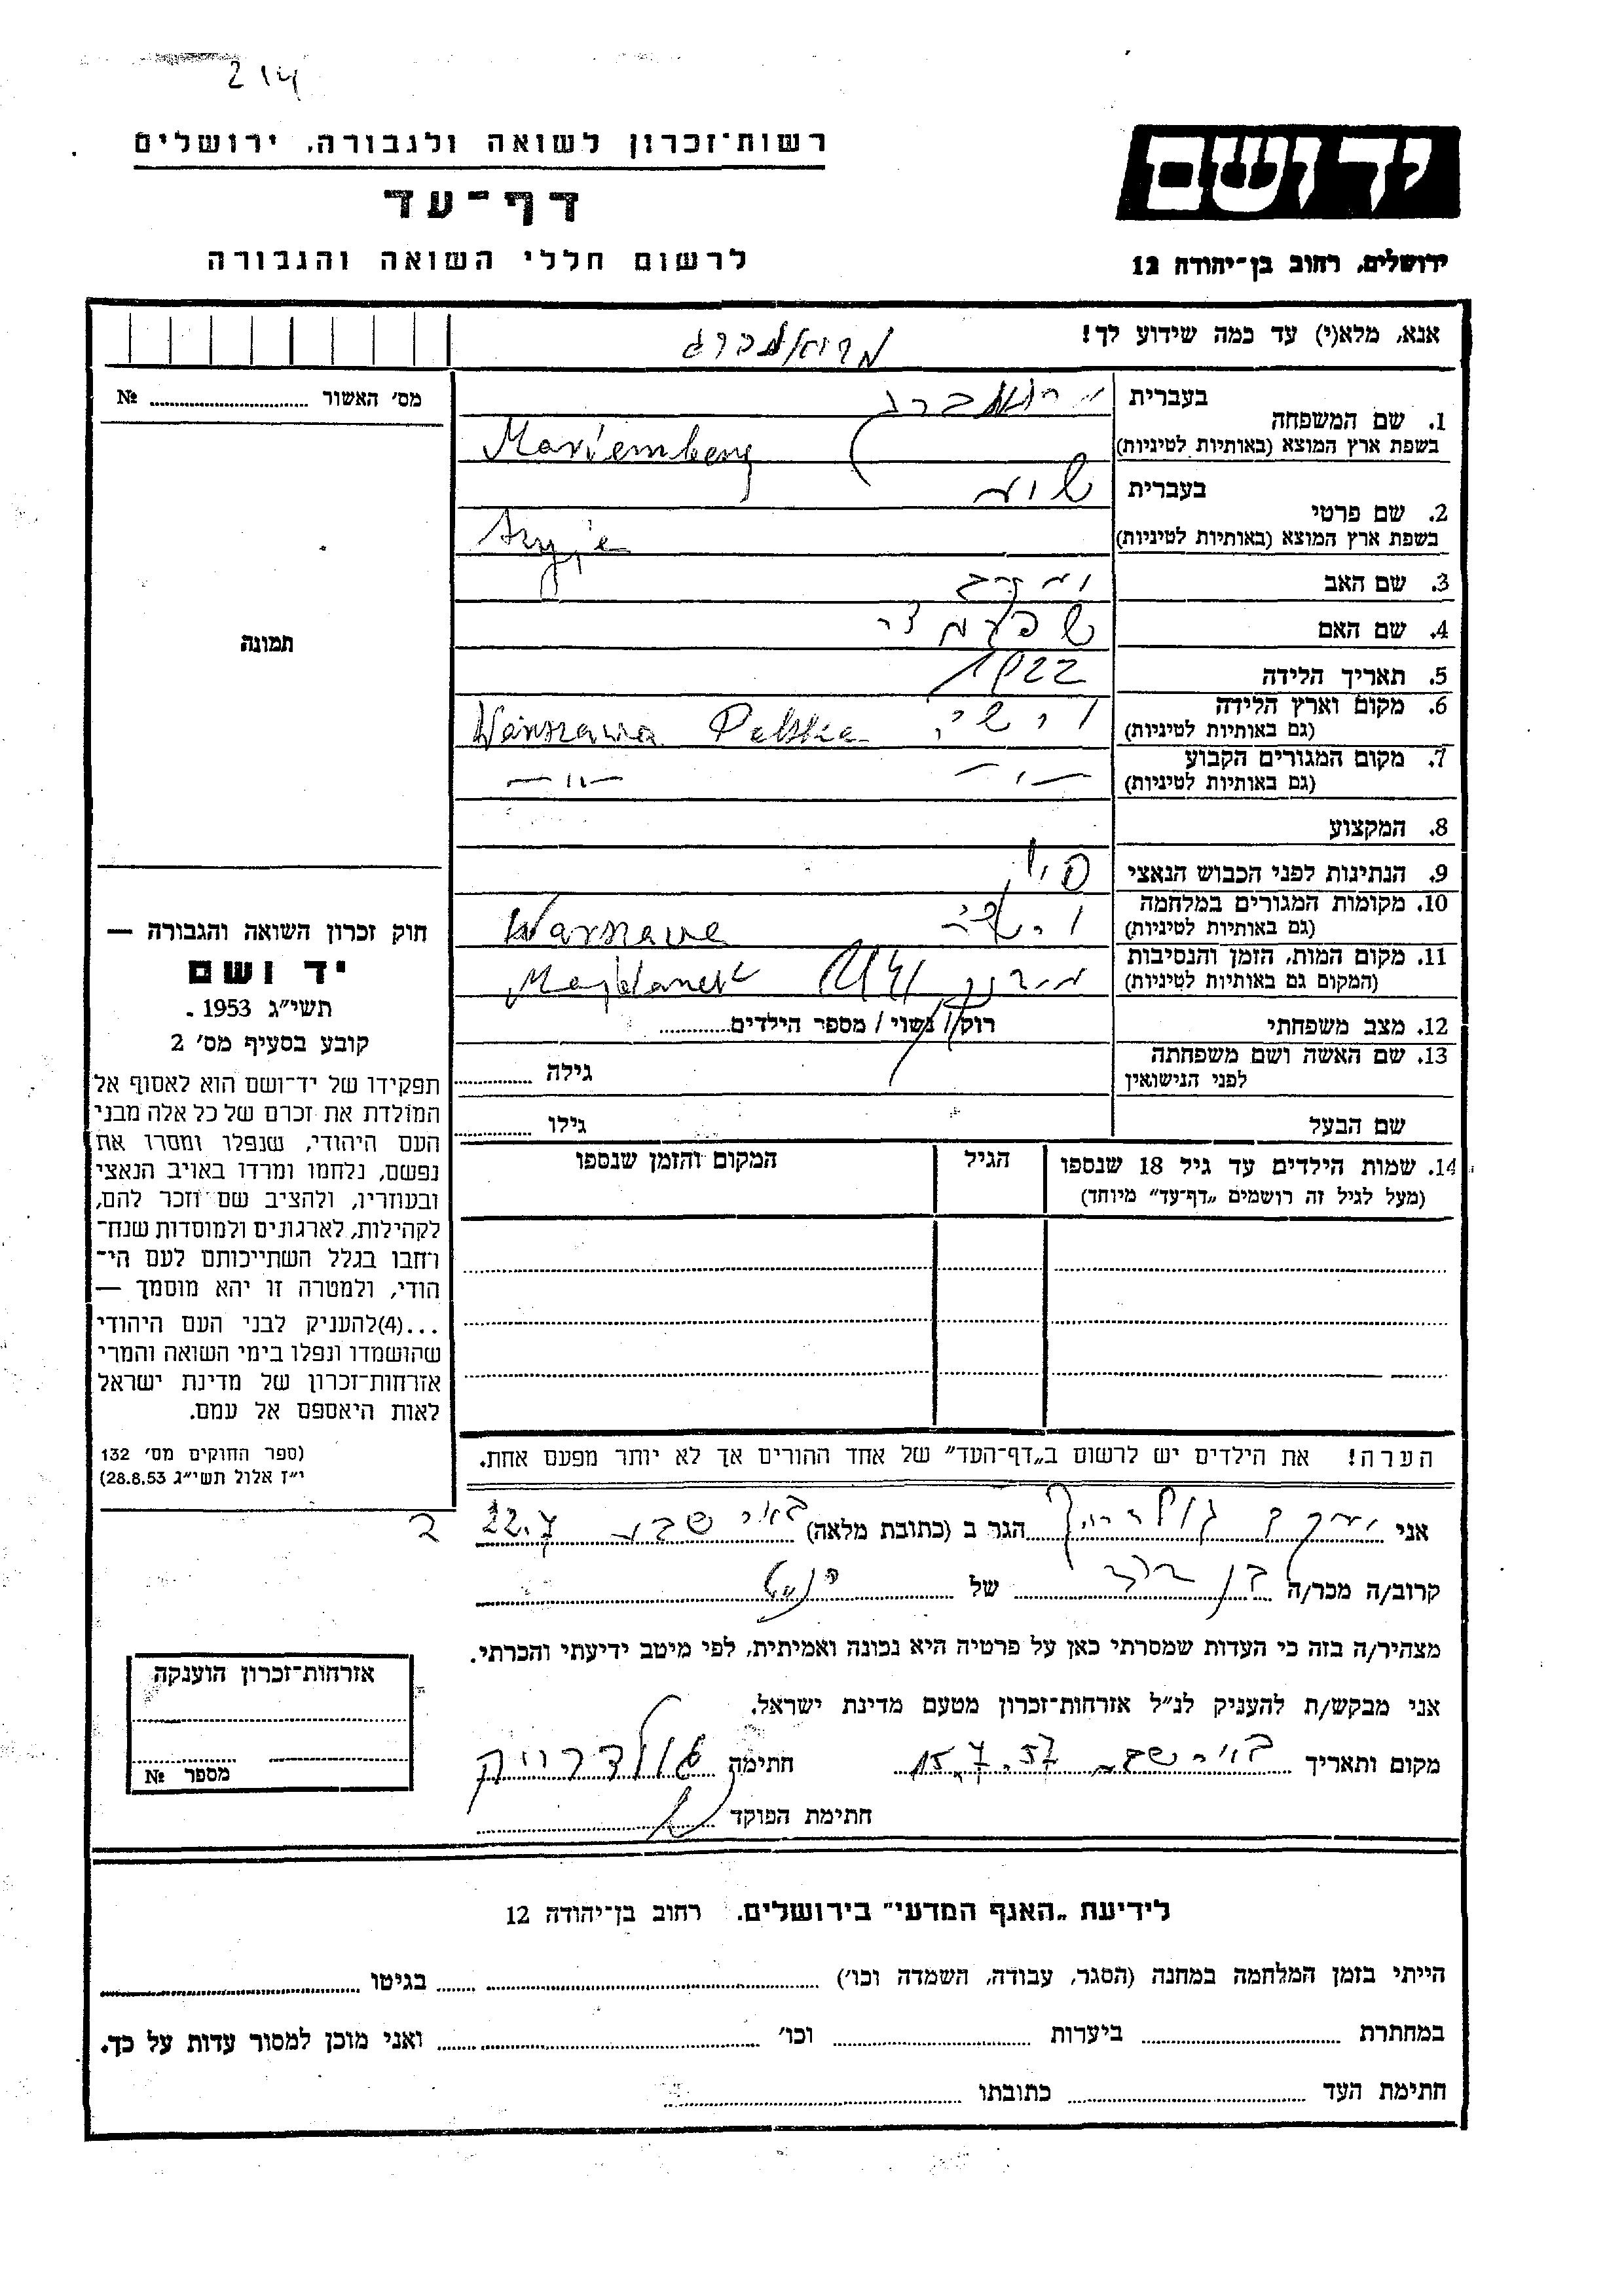 214
רשות־זכרון לשואה ולגבורה, ירושלים
דף־עד
לרשום חללי השואה והגבורה
יד ושם
ירושלים, רחוב בן־יהודה 12
אנא, מלא(י) עד כמה שידוע לך!
מס׳ האשור № 
1. שם המשפחה
בעברית
בשפת ארץ המוצא (באותיות לטיניות)
Mariemberg
2. שם פרטי
בעברית
בשפת ארץ המוצא (באותיות לטיניות)
3. שם האב
4. שם האם
5. תאריך הלידה 1922
6. מקום וארץ הלידה
(גם באותיות לטיניות)
Warszawa Polska
7. מקום המגורים הקבוע
(גם באותיות לטיניות)
—״—
—״—
8. המקצוע
9. הנתינות לפני הכבוש הנאצי
10. מקומות המגורים במלחמה
(גם באותיות לטיניות)
Warszawa
11. מקום המות, הזמן והנסיבות
(המקום גם באותיות לטיניות)
Majdanek
12. מצב משפחתי רווק / נשוי / מספר הילדים
13. שם האשה ושם משפחתה
לפני הנישואין
גילה
שם הבעל
גילו
14. שמות הילדים עד גיל 18 שנספו
(מעל לגיל זה רושמים „דף־עד״ מיוחד)
הגיל
המקום והזמן שנספו
תמונה
חוק זכרון השואה והגבורה —
יד ושם
תשי״ג 1953.
קובע בסעיף מס׳ 2
תפקידו של יד־ושם הוא לאסוף אל
המולדת את זכרם של כל אלה מבני
העם היהודי, שנפלו ומסרו את
נפשם, נלחמו ומרדו באויב הנאצי
ובעוזריו, ולהציב שם וזכר להם,
לקהילות, לארגונים ולמוסדות שנח־
רחבו בגלל השתייכותם לעם הי־
הודי, ולמטרה זו יהא מוסמך —
...(4)להעניק לבני העם היהודי
שהושמדו ונפלו בימי השואה והמרי
אזרחות־זכרון של מדינת ישראל
לאות היאספם אל עמם.
(ספר החוקים מס׳ 132
י״ז אלול תשי״ג 28.8.53)
הערה! את הילדים יש לרשום ב„דף־העד״ של אחד ההורים אך לא יותר מפעם אחת.
אני יעקב גולדרייך הגר ב (כתובת מלאה) באר שבע
קרוב/ה מכר/ה בן דוד של
מצהיר/ה בזה כי העדות שמסרתי כאן על פרטיה היא נכונה ואמיתית, לפי מיטב ידיעתי והכרתי.
אני מבקש/ת להעניק לנ״ל אזרחות־זכרון מטעם מדינת ישראל.
מקום ותאריך באר שבע 15.7.57 חתימה
חתימת הפוקד
אזרחות־זכרון הוענקה
מספר №
לידיעת „האגף המדעי״ בירושלים, רחוב בן־יהודה 12
הייתי בזמן המלחמה במחנה (הסגר, עבודה, השמדה וכו׳) בגיטו
במחתרת ביערות וכו׳ ואני מוכן למסור עדות על כך.
חתימת העד כתובתו